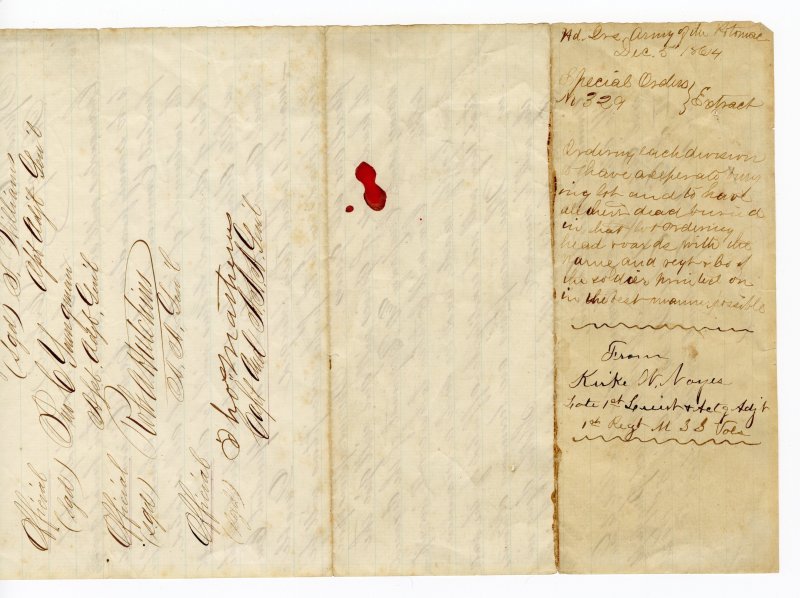 Hd. Qrs. Army of the Potomac
Dec. 5th 1864
Special Orders
No 329 } Extract
Ordering each division
to have a seperate
ing lot and to have
all their dead buried
in that lot ordering
head boards with the
name and regt & Co of
the soldier printed on
in the best manner possible
From
Kirke W. Noyes
Late 1st Lieut & Actg Adjt
1st Regt M S S Vols
(sgd) S Williams
Asst Adjt Gen'l
Official
(sgd) C Youngman
Asst Adjt Genl
Official
(sgd) Hutchins
A. A. Gen'l
Official
(sgd) Mathews
Capt and A A A Genl